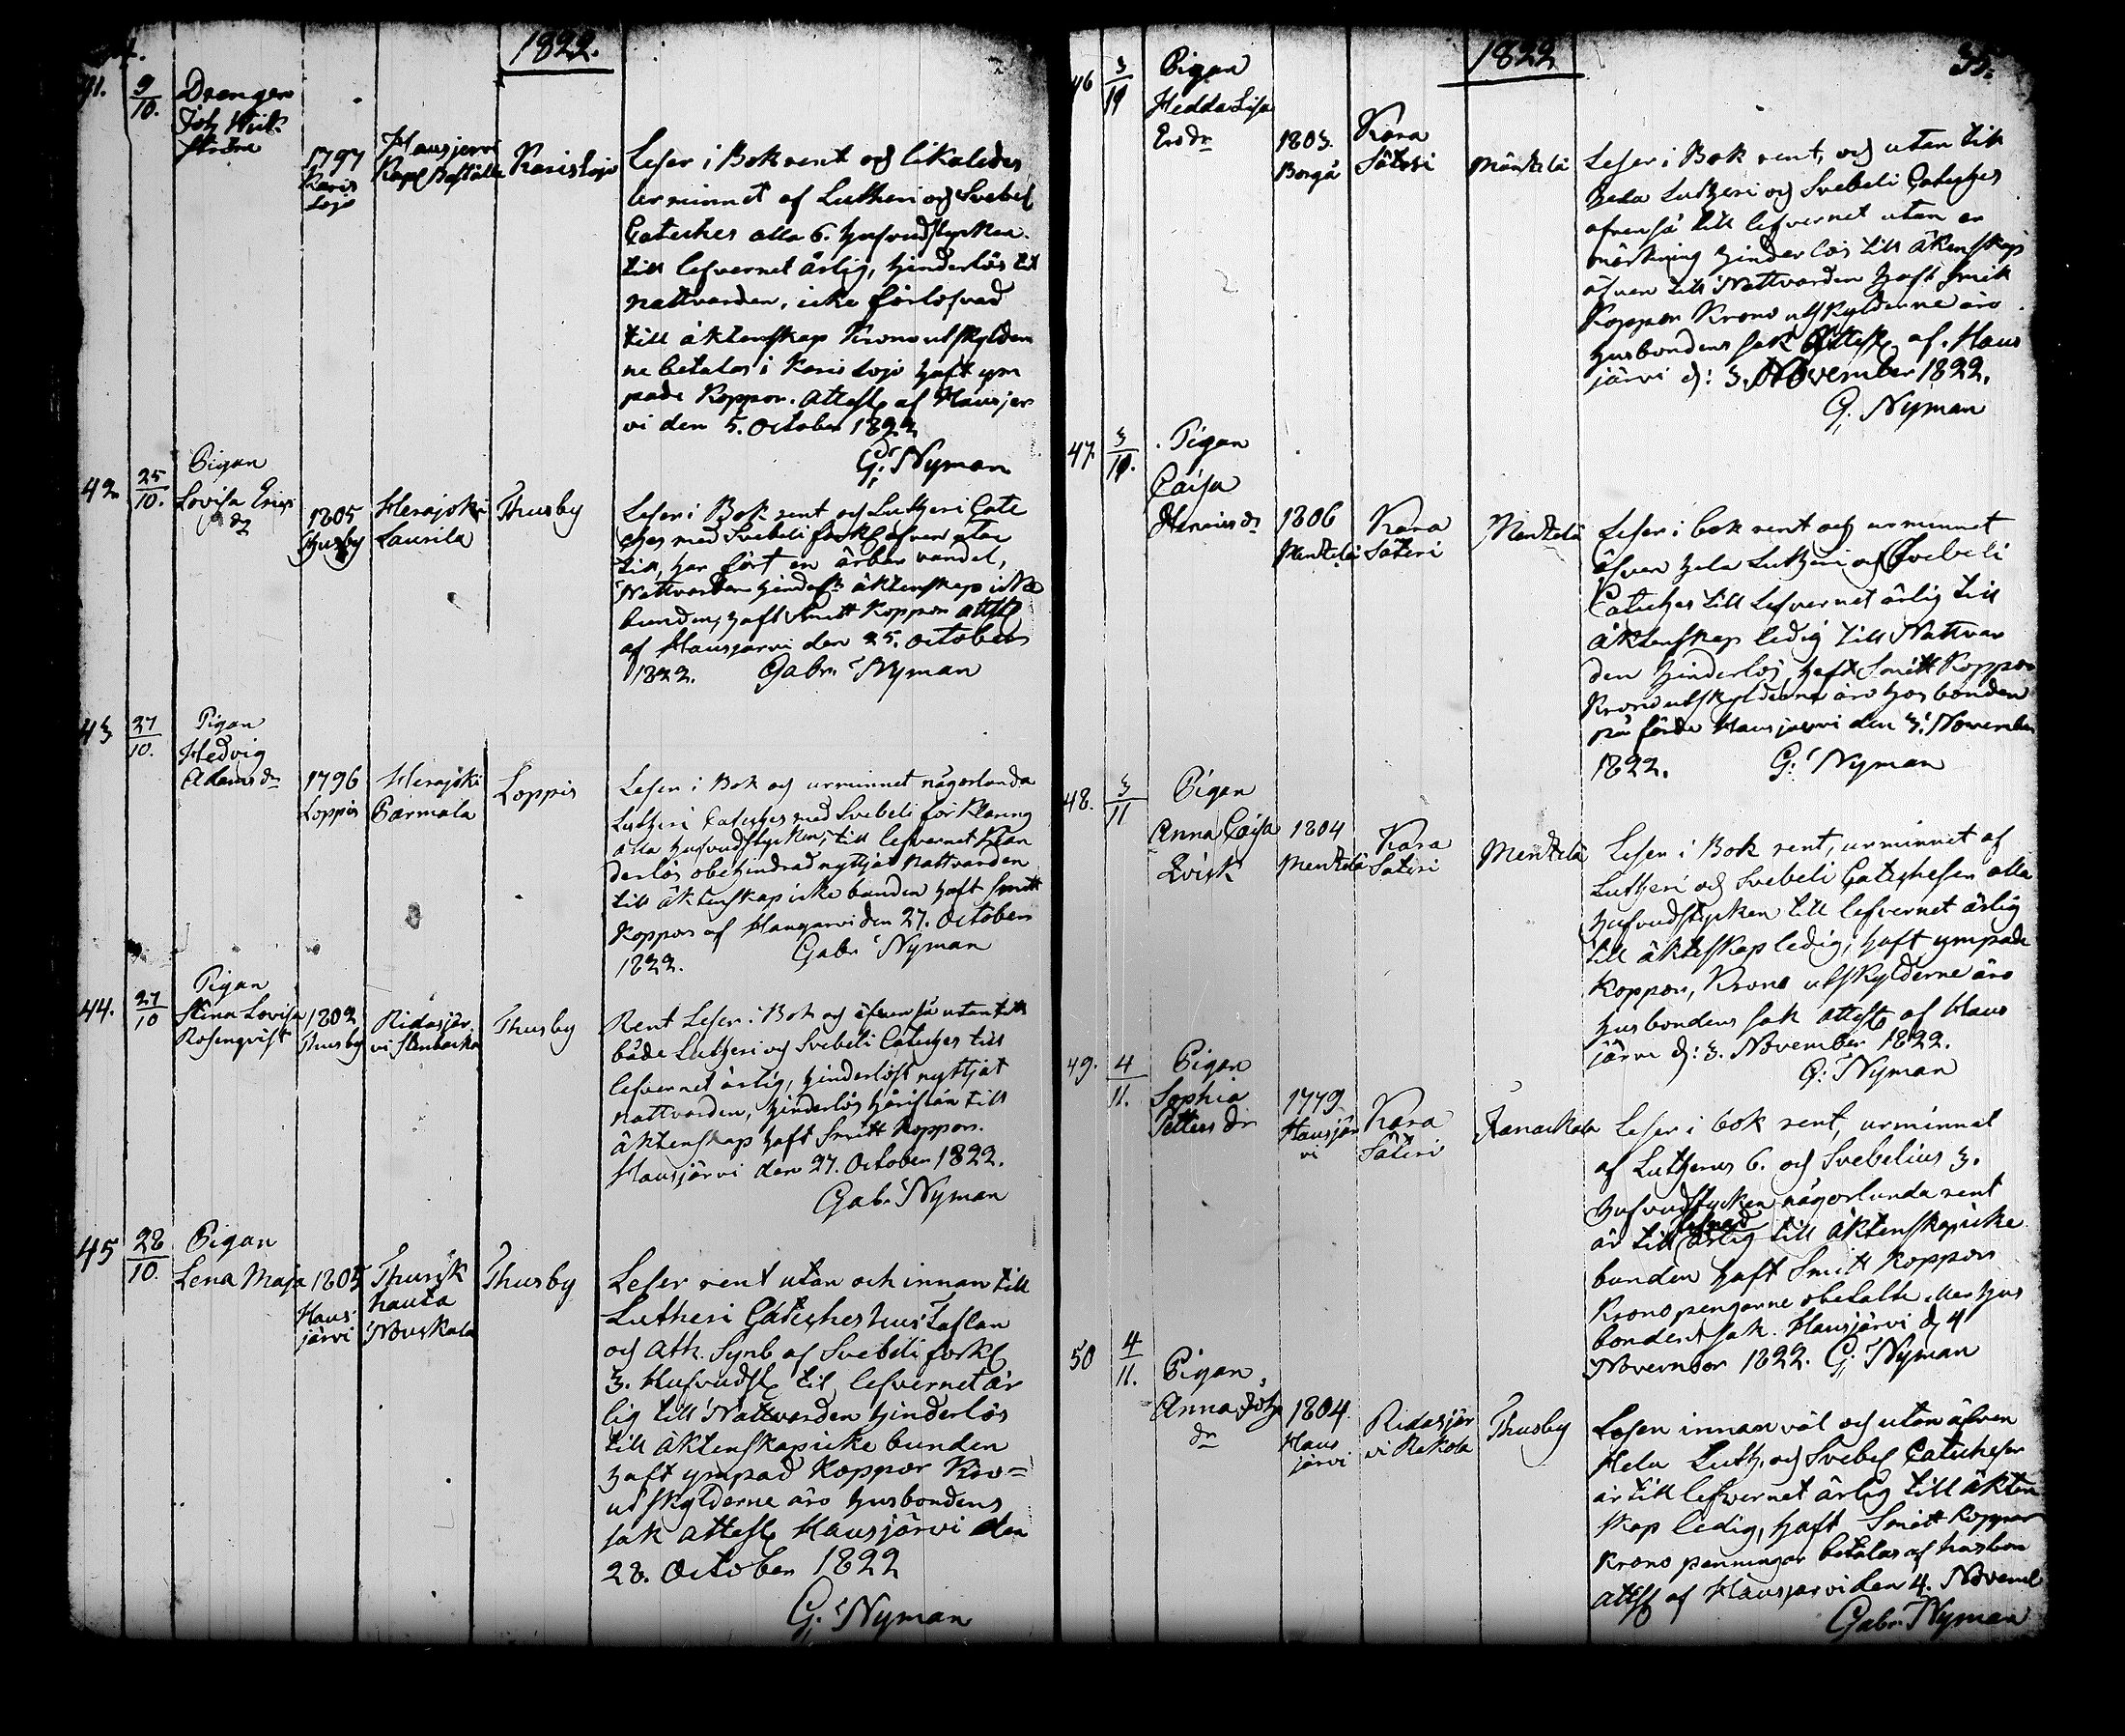 1822.
41.
9/10.
Drengen
Joh
1797
Karis
Lojo
Hausjervi
Kapl Boställe
Karislojo
Leser i Bok rent och likaledes
urminnet af Lutheri och Svebel
Catechес alla 6. hufvudstycken
till lefvernet ärlig, hinderlös till
nattvarden, icke förlofvad
till äktenskap Krono utskylder
ne betalas i Karislojo haft ym
pade Koppor. Attest af Hausjer
vi den 5. October 1822
G. Nyman
42.
25/10.
Pigan
Lovisa Erics
dr
1805
Thusby
Herajoki
Laurila
Thusby
Leser i Bok rent och Lutheri Cate
ches med Svebeli forkl afven utan
till, har fört en ärbar vandel,
Nattvarden äktenskap
bunden, haft Smitt Koppor attest
af Hausjarvi den 25. October
1822. Gabr. Nyman
43
27/10.
Pigan
Hedvig
Adams dr
1796
Loppis
Herajoki
Parmala
Loppis
Leser i Bok och urminnet någorlunda
Lutheri Cateches med Svebeli förklaring
alla hufvudstycken, till lefvernet klan
derlös obehindrad nyttjat Nattvarden
till äktenskap icke bunden haft Smitt
Koppor af Hausjarvi den 27. October
1822. Gabr. Nyman
44.
27/10
Pigan
Stina Lovisa
Rosenqvist
1802
Thusby
Ridasjär
vi Stenbacka
Thusby
Rent Leser i Bok och äfven så utantill
både Lutheri och Svebeli Cateches till
lefvernet ärlig, hinderlöst nyttjat
nattvarden, hinderlös härifrån till
äktenskap haft Smitt Koppor.
Hausjärvi den 27. October 1822.
Gabr. Nyman
45
28/10.
Pigan
Lena Maja
1805
Haus
järvi
Turk
hauta
Thusby
Leser rent utan och innan till
Lutheri Cateches hustaflan
och Ath. Symb af Svebeli forkl
3. Hufvudst till lefvernet är
lig till Nattvarden hinderlös
till äktenskap icke bunden
haft ympad Koppor Kro=
utskylderne äro husbondens
sak attest Hausjärvi den
28. October 1822
G. Nyman
1822
35.
46
3/11
Pigan
Hedda Lisa
Ers dr
1803.
Borgå
Kara
Säteri
Mäntelä
Leser i Bok rent, och utan till
hela Lutheri och Svebeli Catechес
afven så till lefvernet utan an
märkning hinder lös till äktenskap
äfven till Nattvarden haft Smitt
Koppor Krono utskylderne äro
husbondens sak Attest af Haus
järvi d: 3. November 1822.
G. Nyman
47.
3/11.
Pigan
Caisa
Henrics dr
1806
Mentelä
Kara
Säteri
Mentelä
Leser i bok rent och urminnet
äfven hela Lutheri och Svebeli
Cateches till Lefvernet ärlig till
äktenskap ledig till Nattvar
den hinderlös, haft Smitt Koppor
Krono utskylderne äro hosbonden
på förde Hausjarvi den 3. November
1822. G. Nyman
48.
3/11
Pigan
Anna Caisa
Qvick
1804
Mentelä
Kara
Säteri
Mentelä
Leser i Bok rent, urminnet af
Lutheri och Svebeli Catechesen alla
hufvudstycken till lefvernet ärlig
till äkteskap ledig, haft ympade
koppor, Krono utskylderne äro
husbondens sak attest af Haus
järvi d: 3. November 1822.
G. Nyman
49.
4/11.
Pigan
Sophia
Petters dr
1779
Hausjär
vi
Kara
Säteri
Janackala
Leser i bok rent, urminnet
af Lutherus 6. och Svebelius 3.
hufvudstycken någorlunda rent
lefnad
är till ärlig till äktenskap icke
bunden haft Smitt Koppor
Krono pengarne obetalte hus
bondens sak. Hausjärvi d 4
November 1822. G. Nyman
50
4/11.
Pigan
Anna Joh
dr
1804.
Haus
järvi
Ridasjär
vi Rekola
Thusby
Leser innan väl och utan äfven
Hela Luth. och Svebel Catechesen
är till lefvernet ärlig till äkten
skap ledig, haft Smitt Koppor
Krono penningar betalas af husbon
attest af Hausjarvi den 4. Novemb
Gabr. Nyman